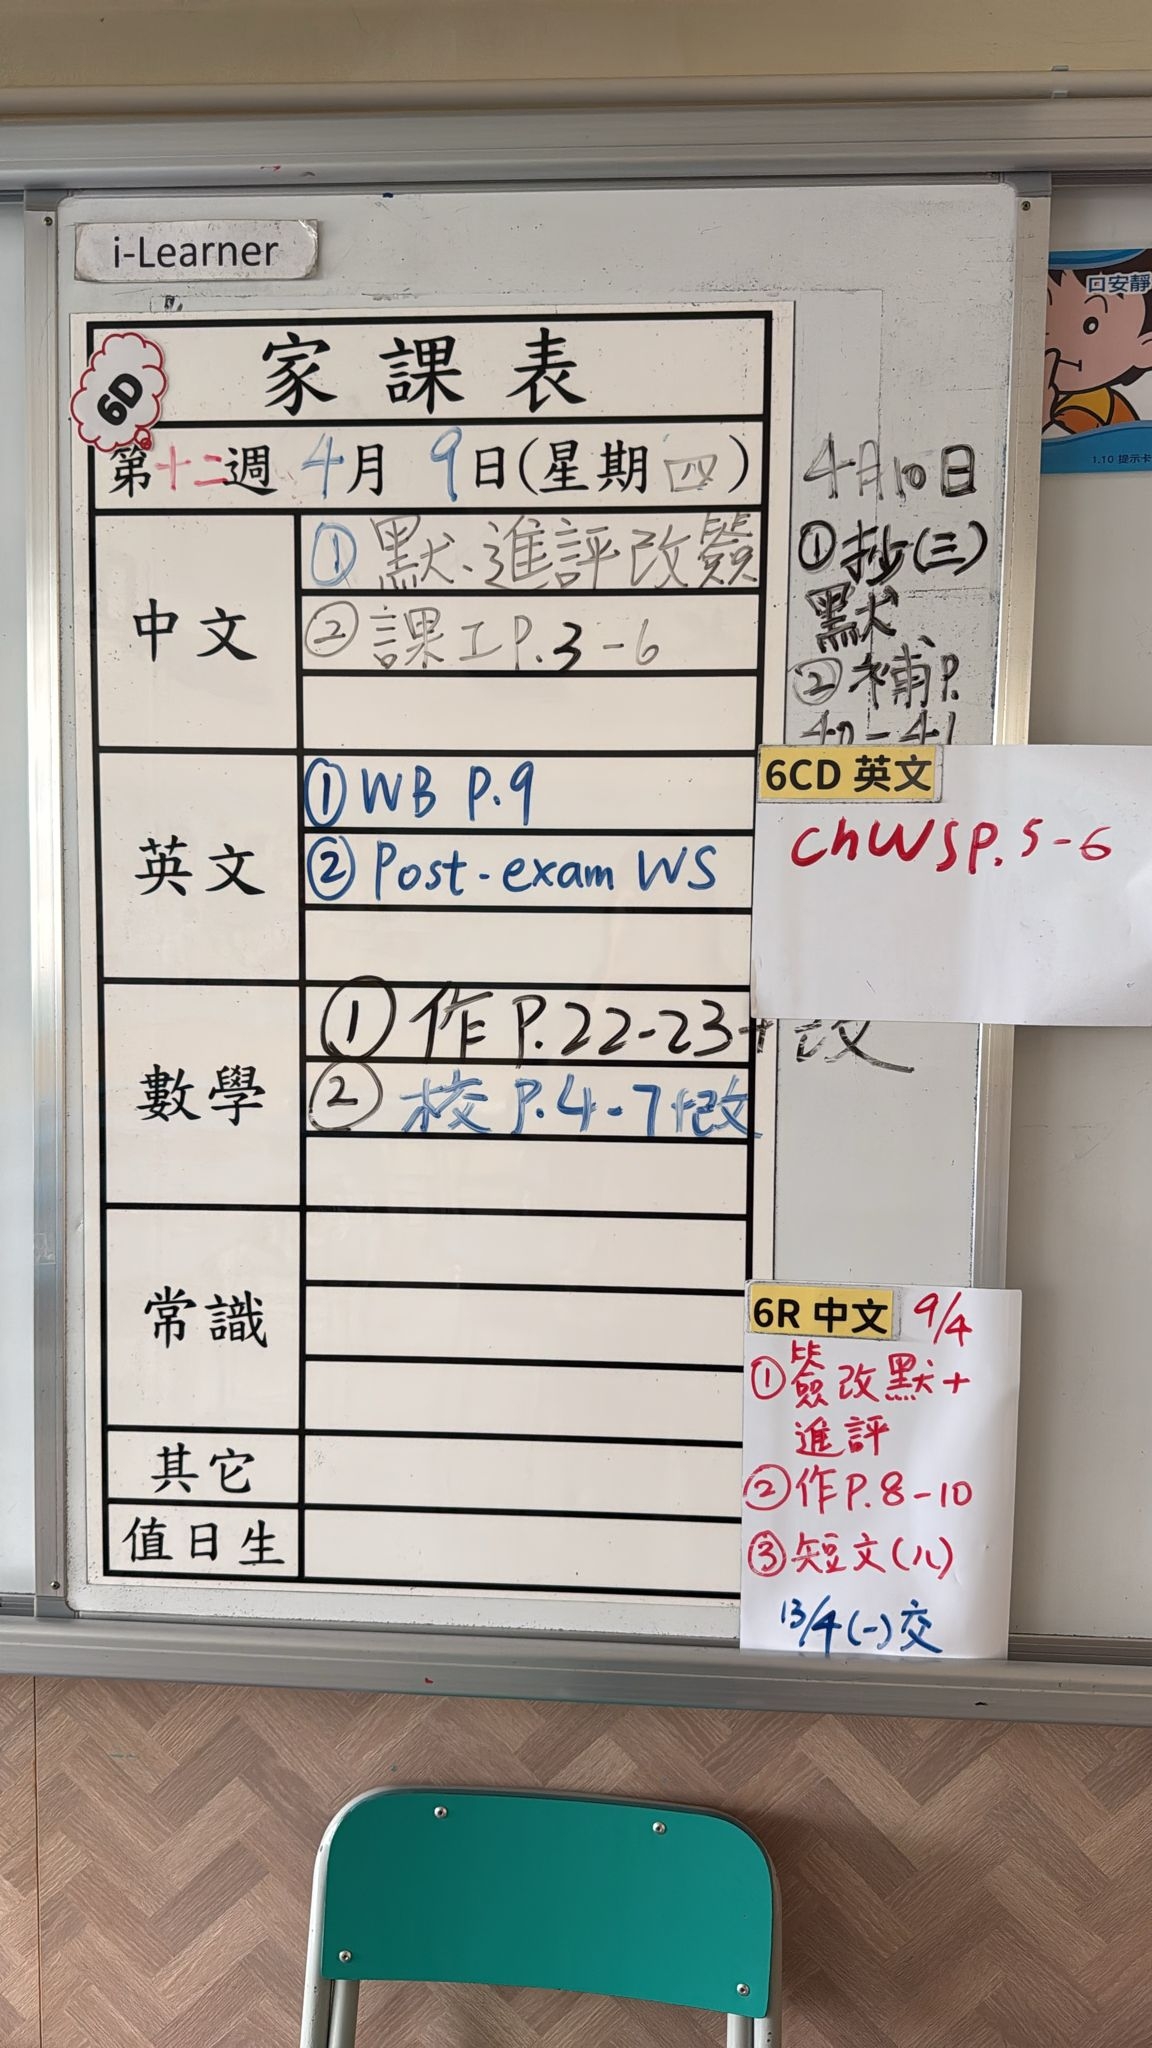 i-Learner
6D
家課表
第十二週 4月 9日(星期四)
中文
①默、進評改簽
②課工P.3-6
英文
①WB P.9
②Post-exam WS
數學
①作P.22-23+改
②校P.4-7+改
常識
其它
值日生
4月10日
①抄(三)
默
②補P.
40-41
6CD 英文
ChWS P.5-6
6R 中文 9/4
①簽改默+
進評
②作P.8-10
③短文(八)
13/4(一)交
口安靜
1.10 提示卡